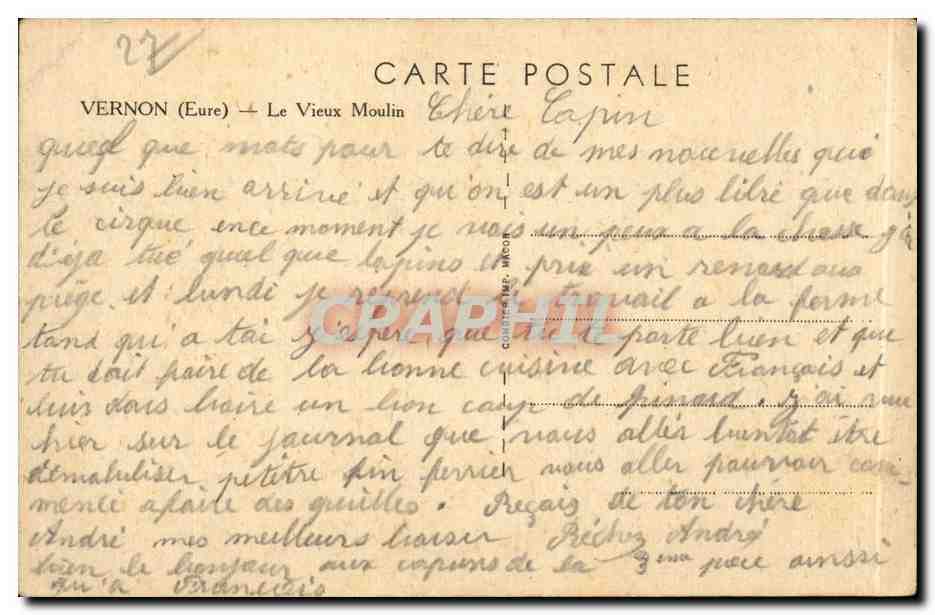 27
CARTE POSTALE
VERNON (Eure) — Le Vieux Moulin
Chére Copin
quelq que mots pour te dire de mes nouvelles que
je suis bien arrivé et qu'on est un plus libre que dans
le cirque ence moment je vais un peux a la chasse j'ai
d'éja tué quel que lapins et pris un renard aux
piége et lundi je reprend le travail a la ferme
tand qu'a tai j'espere que tu te porte bien et que
tu doit faire de la bonne cuisine avec François et
puis dois boire un bon coup de pinard. j'ai vue
hier sur le journal que vous aller bientot être
démobiliser petitre fin ferrier vous aller pourvoir com-
mencé a faire des quilles. Reçois de ton chére
André mes meilleurs baiser André
bien le bonjour aux copins de la 3eme piece ainssi
qu'a François
COMBIER IMP. MACON
CPAPHIL